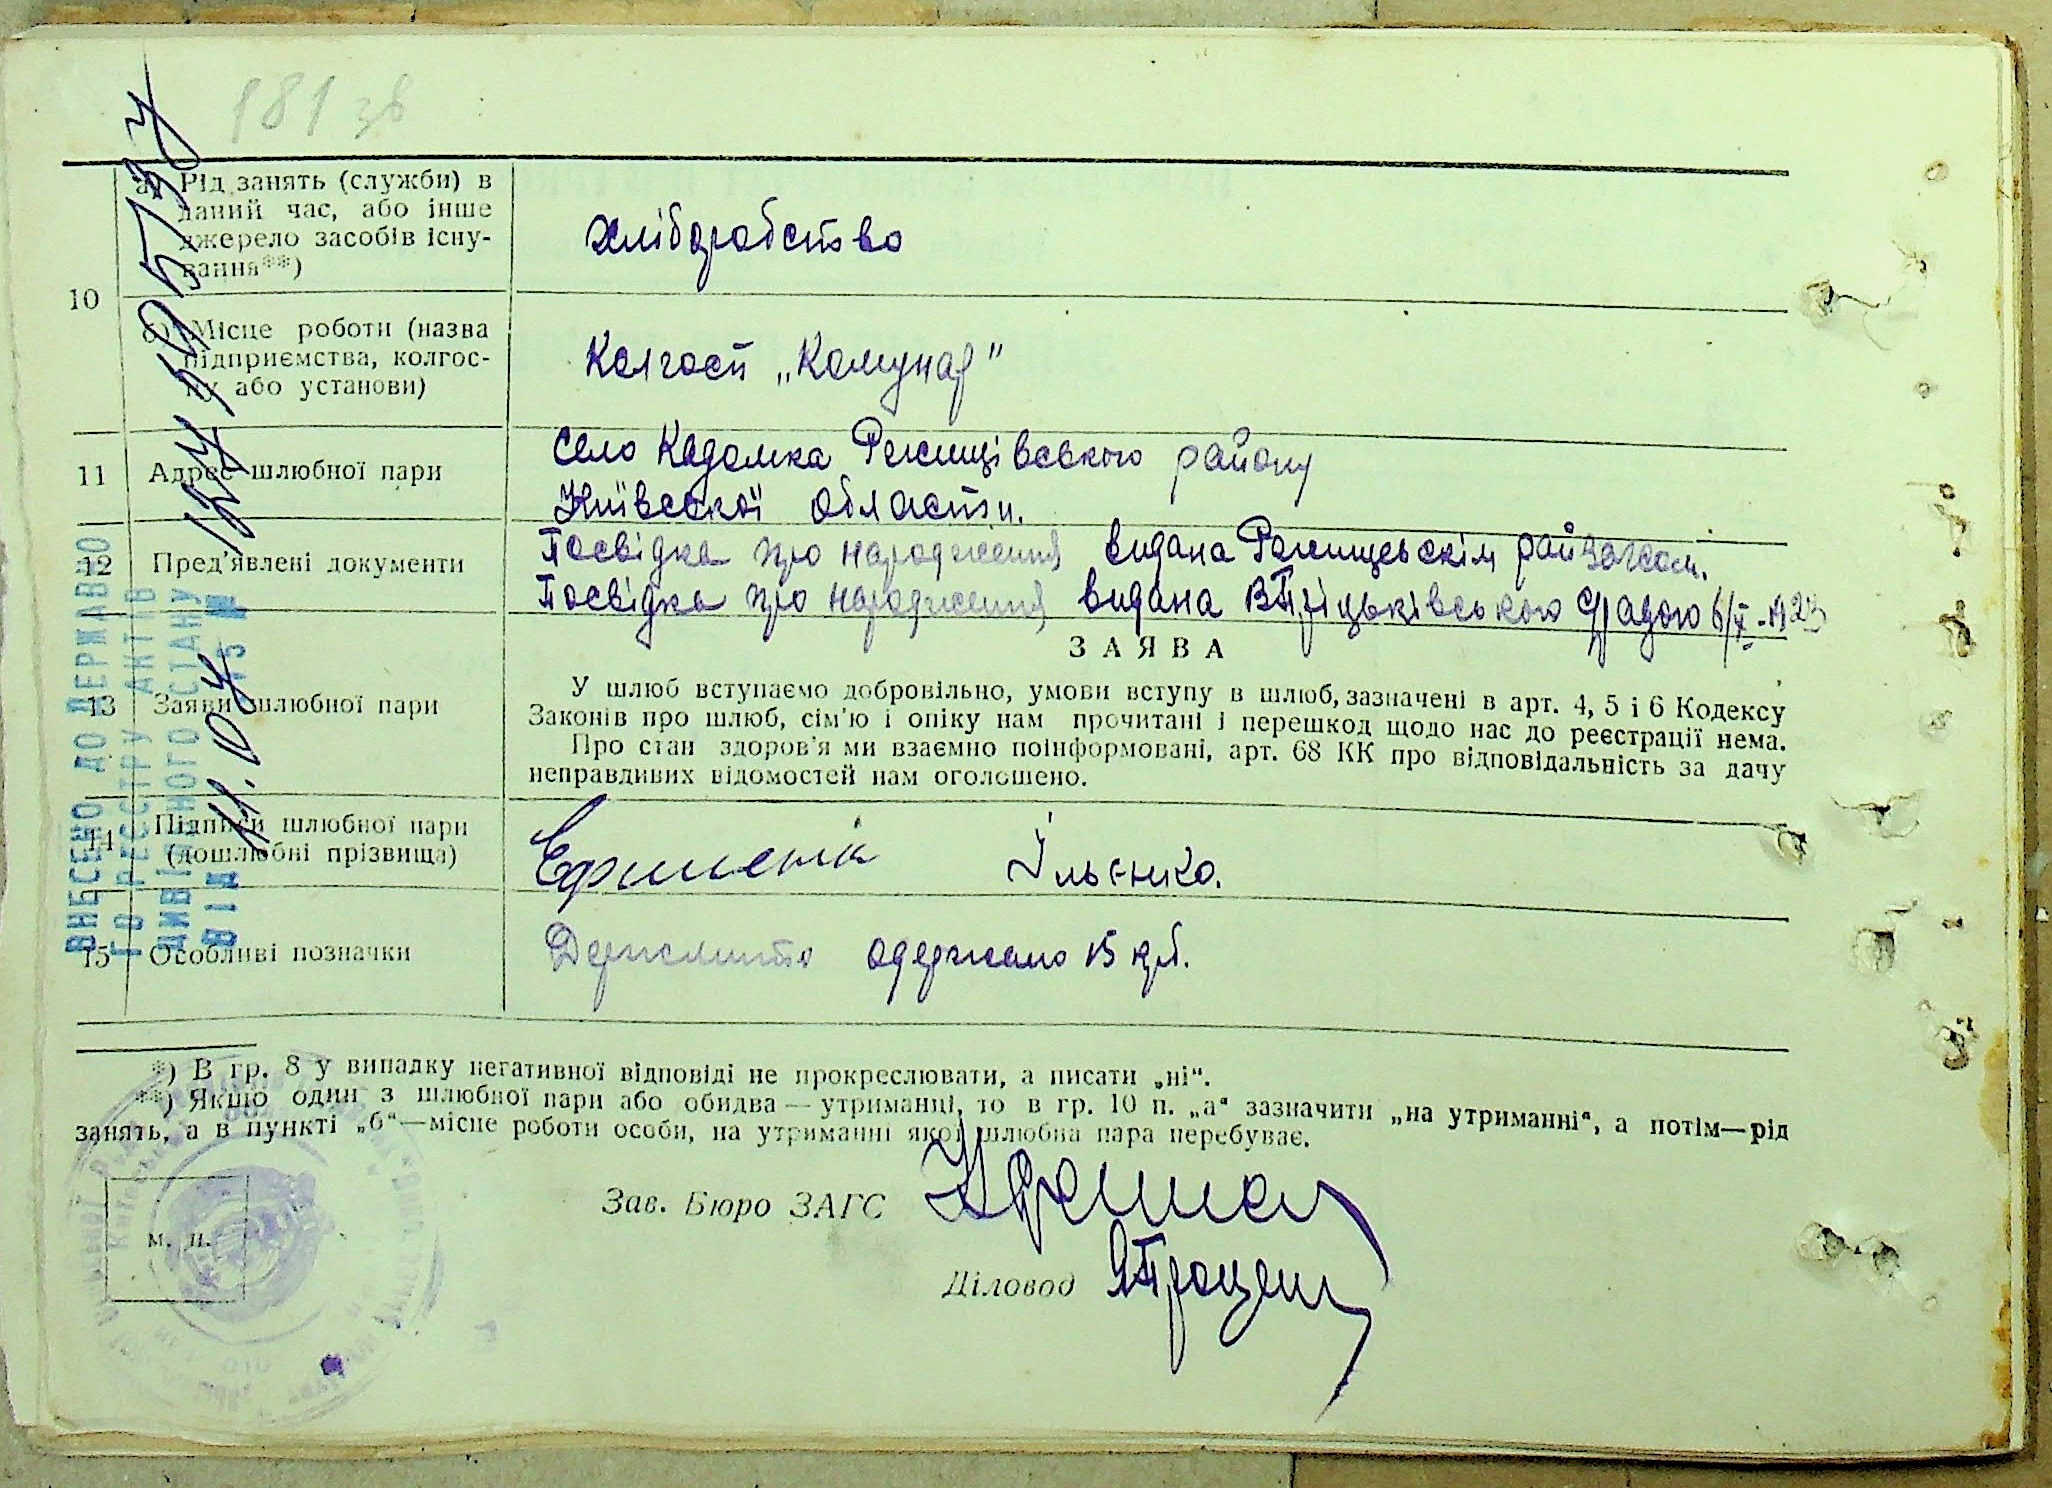 181 зв
10
а) Рід занять (служби) в
даний час, або інше
джерело засобів існу-
вання**)
хліборобство
б) Місце роботи (назва
підприємства, колгос-
пу або установи)
Колгосп „Комунар"
11
Адрес шлюбної пари
село Кадомка Ржищівського району
Київської области.
12
Пред'явлені документи
Посвідка про народження видана Ржищевськім райзагсом.
Посвідка про народження видана
13
Заяви шлюбної пари
ЗАЯВА
У шлюб вступаємо добровільно, умови вступу в шлюб, зазначені в арт. 4, 5 і 6 Кодексу
Законів про шлюб, сім'ю і опіку нам прочитані і перешкод щодо нас до реєстрації нема.
Про стан здоров'я ми взаємно поінформовані, арт. 68 КК про відповідальність за дачу
неправдивих відомостей нам оголошено.
14
Підписи шлюбної пари
(дошлюбні прізвища)
Ільєнко.
15
Особливі позначки
Держмито одержано 15 крб.
*) В гр. 8 у випадку негативної відповіді не прокреслювати, а писати „ні".
**) Якщо один з шлюбної пари або обидва — утриманці, то в гр. 10 п. „а" зазначити „на утриманні", а потім—рід
занять, а в пункті „б"—місце роботи особи, на утриманні якої шлюбна пара перебуває.
Зав. Бюро ЗАГС
Діловод
м. п.
ВНЕСЕНО ДО ДЕРЖАВНО
ГО РЕЄСТРУ АКТІВ
ЦИВІЛЬНОГО СТАНУ
ВІД